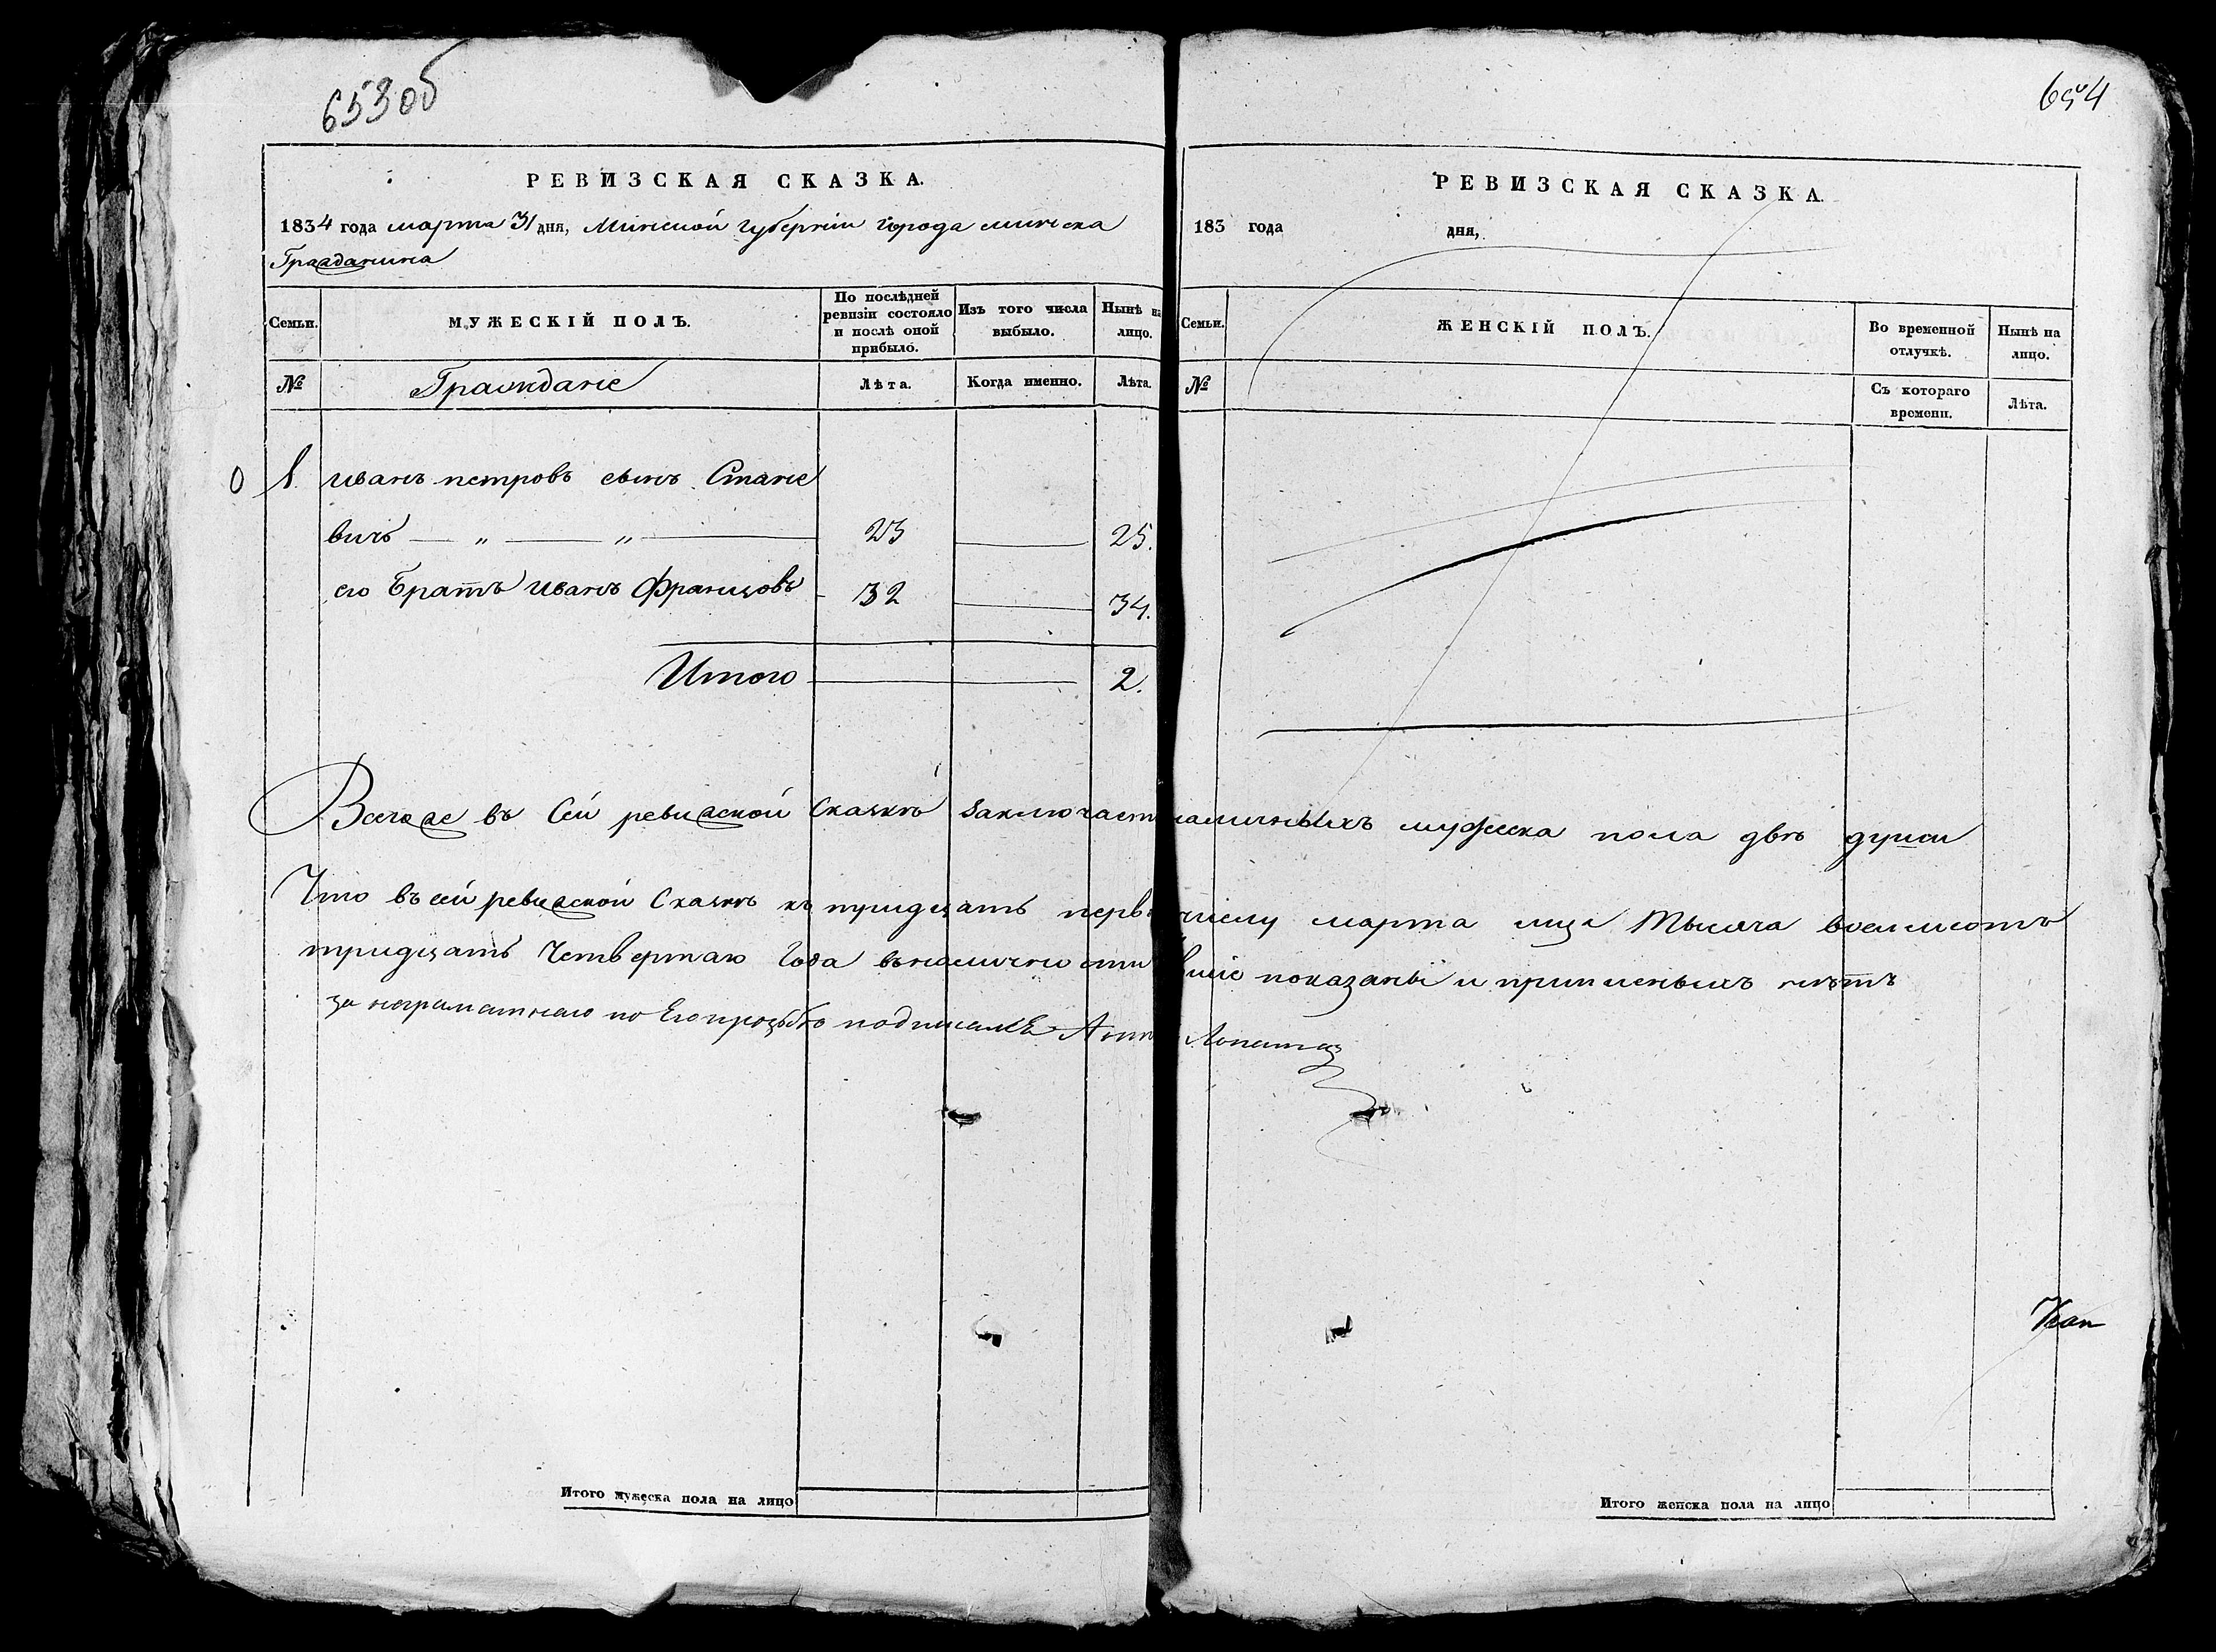 653об
РЕВИЗСКАЯ СКАЗКА.
1834 года марта 31 дня, Минской губернiи города минска
Гражданина
Семьи. МУЖЕСКІЙ ПОЛЪ. По послѣдней ревизіи состояло и послѣ оной прибыло. Изъ того числа выбыло. Нынѣ на лицо.
№ Граждане Лѣта. Когда именно. Лѣта.
1. иванъ петровъ сынъ Стане
вичъ — „ — „ — 23 — 25.
его Братъ иванъ Францовъ - 32 — 34.
Итого — 2.
654
РЕВИЗСКАЯ СКАЗКА.
183 года дня,
Семьи. ЖЕНСКІЙ ПОЛЪ. Во временной отлучкѣ. Нынѣ на лицо.
№ Съ котораго времени. Лѣта.
Всего же въ Сей ревизской Сказкѣ заключаетъ наличныхъ мужеска пола двѣ души
Что въ сей ревизской Сказкѣ къ тридцать перв числу марта мца тысяча восемсотъ
тридцать Четвертаго Года въналичности показаны и приписныхъ нѣтъ
за неграматнаго по Его прозьбѣ подписалъ Лопата
Кап
Итого мужеска пола на лицо
Итого женска пола на лицо